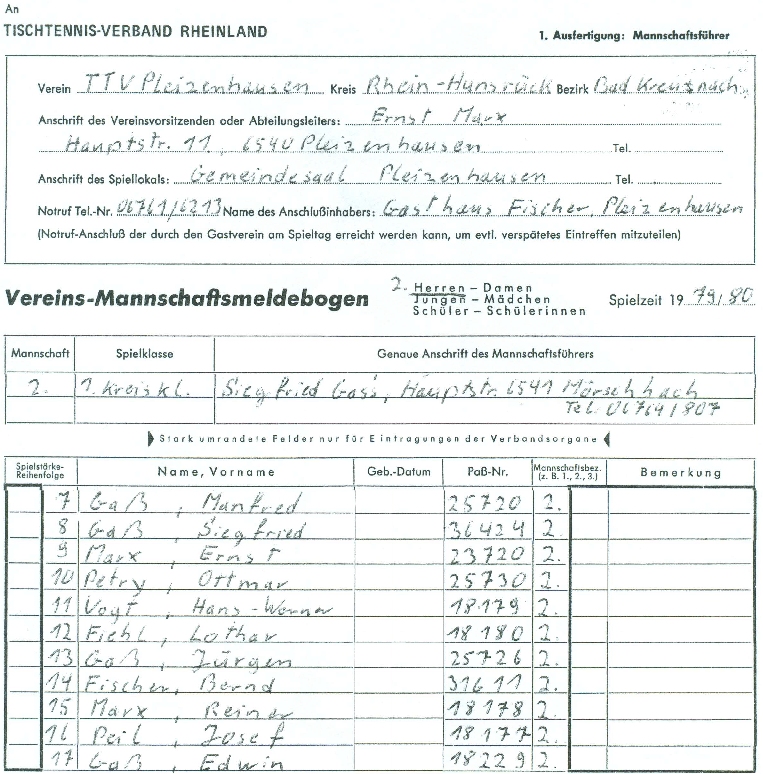 An
TISCHTENNIS-VERBAND RHEINLAND
1. Ausfertigung: Mannschaftsführer
Verein TTV Pleizenhausen Kreis Rhein-Hunsrück Bezirk Bad Kreuznach
Anschrift des Vereinsvorsitzenden oder Abteilungsleiters: Ernst Marx
Hauptstr. 11, 6540 Pleizenhausen Tel.
Anschrift des Spiellokals: Gemeindesaal Pleizenhausen Tel.
Notruf Tel.-Nr. 06761/6213 Name des Anschlußinhabers: Gasthaus Fischer, Pleizenhausen
(Notruf-Anschluß der durch den Gastverein am Spieltag erreicht werden kann, um evtl. verspätetes Eintreffen mitzuteilen)
Vereins-Mannschaftsmeldebogen 2. Herren – Damen
Jungen – Mädchen
Schüler – Schülerinnen
Spielzeit 19 79/80
Mannschaft Spielklasse Genaue Anschrift des Mannschaftsführers
2. 1. Kreiskl. Siegfried Gass, Hauptstr. 6541 Mörschbach
Tel. 06764/807
Stark umrandete Felder nur für Eintragungen der Verbandsorgane
Spielstärke-Reihenfolge Name, Vorname Geb.-Datum Paß-Nr. Mannschaftsbez. (z. B. 1., 2., 3.) Bemerkung
7 Gaß, Manfred 25720 2.
8 Gaß, Siegfried 36424 2.
9 Marx, Ernst 23720 2.
10 Petry, Ottmar 25730 2.
11 Vogt, Hans-Werner 18179 2.
12 Fiehl, Lothar 18180 2.
13 Gaß, Jürgen 25726 2.
14 Fischer, Bernd 31611 2.
15 Marx, Reiner 18178 2.
16 Peil, Josef 18177 2.
17 Gaß, Edwin 18229 2.